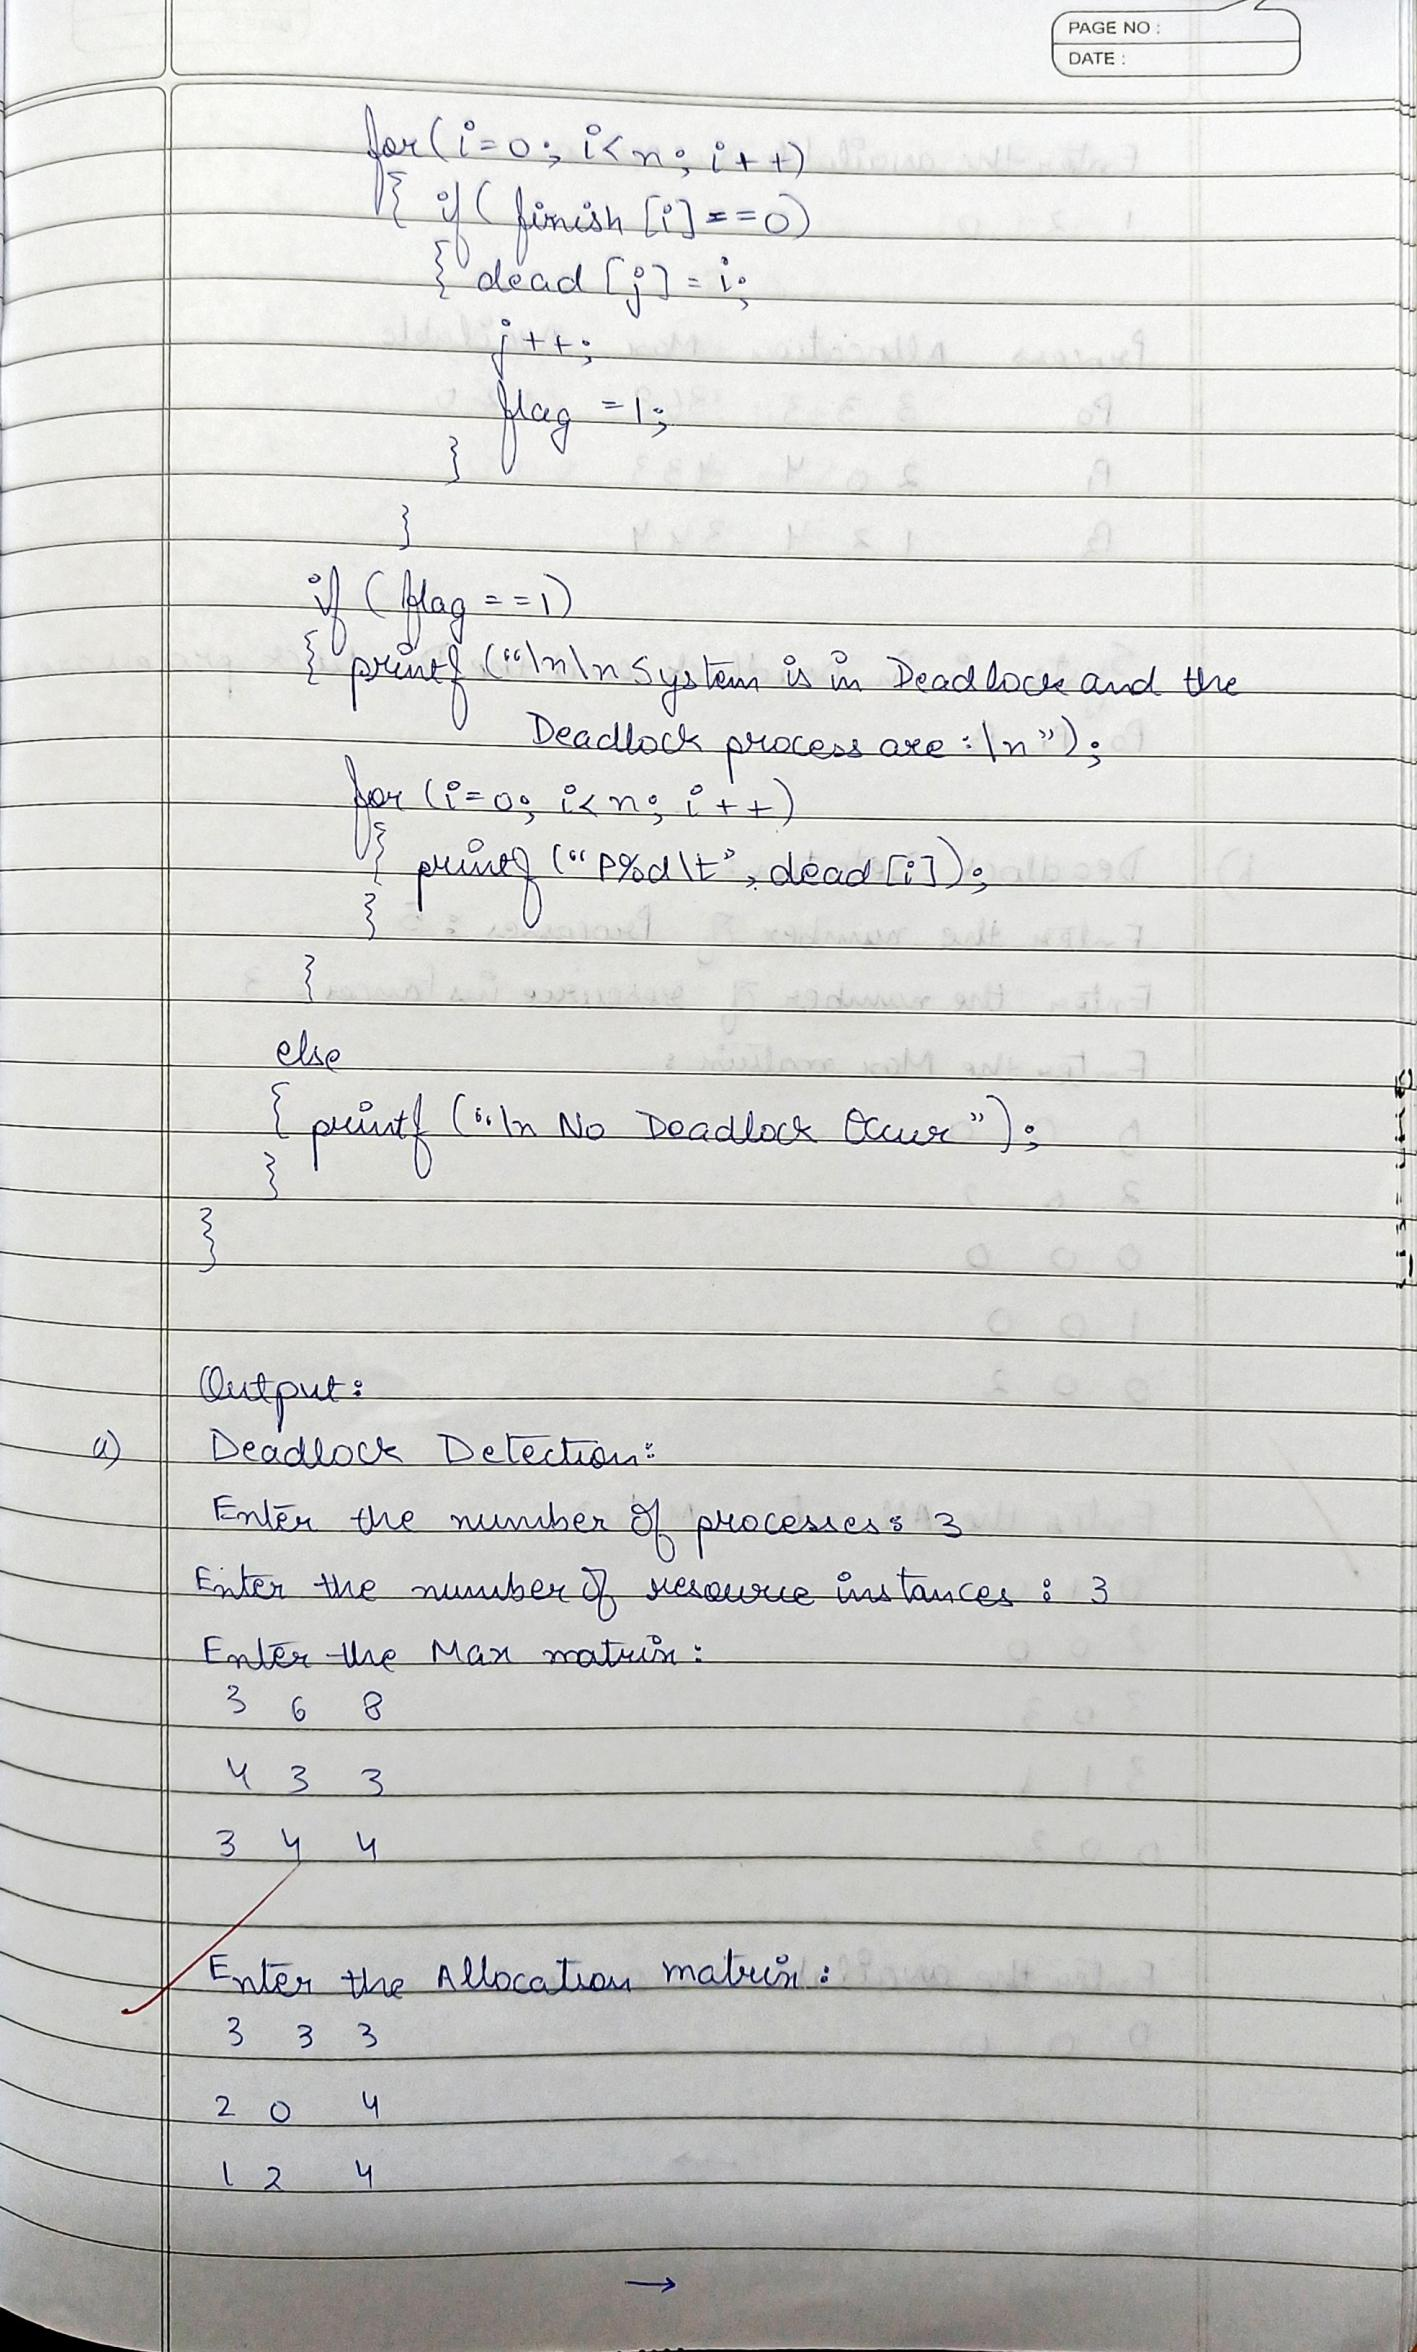 PAGE NO :
DATE :
for(i=0; i<n; i++)
{ if( finish [i]==0)
{ dead [j]=i;
j++;
flag =1;
}
}
if (flag ==1)
{ printf ("\n\n System is in Deadlock and the
Deadlock process are :\n");
for (i=0; i<n; i++)
{ printf ("P%d\t", dead [i]);
}
}
else
{ printf ("\n No Deadlock Occur");
}
}
Output:
a) Deadlock Detection:
Enter the number of processes: 3
Enter the number of resource instances : 3
Enter the Max matrix:
3 6 8
4 3 3
3 4 4
Enter the Allocation matrix:
3 3 3
2 0 4
1 2 4
→